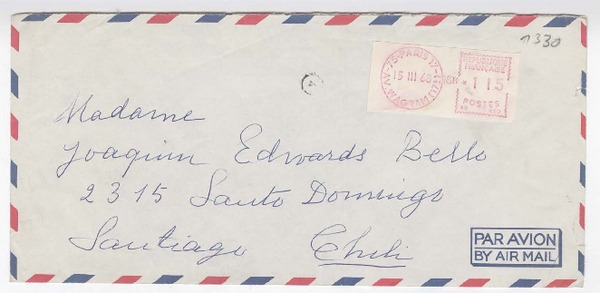 1330
75-PARIS IX
15 III 68
AV. WAGRAM (17)
REPUBLIQUE
FRANCAISE
115
POSTES
Madame
Joaquim Edwards Bello
2315 Santo Domingo
Santiago Chili
PAR AVION
BY AIR MAIL